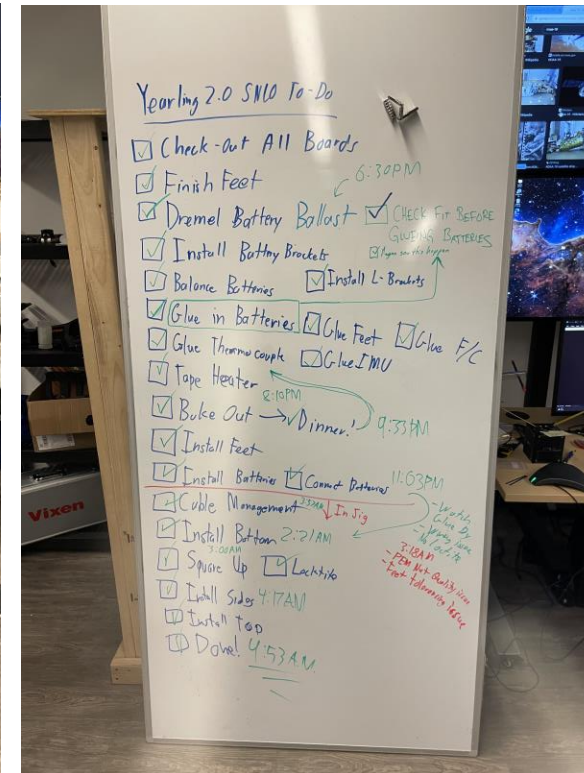 Yearling 2.0 SN10 To-Do
Check-out All Boards
6:30PM
Finish Feet
Dremel Battery Ballast
CHECK FIT BEFORE
GLUEING BATTERIES
Install Battery Brackets
Balance Batteries
Install L-Brackets
Glue in Batteries
Glue Feet
Glue F/C
Glue Thermocouple
Glue IMU
Tape Heater
8:10PM
Bake Out → Dinner!
9:33PM
Install Feet
Install Batteries
Connect Batteries
11:03PM
Cable Management
In Jig
Install Bottom 2:21AM
Square Up
Loctite
3:18AM
Install Sides 4:17AM
Install Top
Done! 4:53A.M.
Vixen